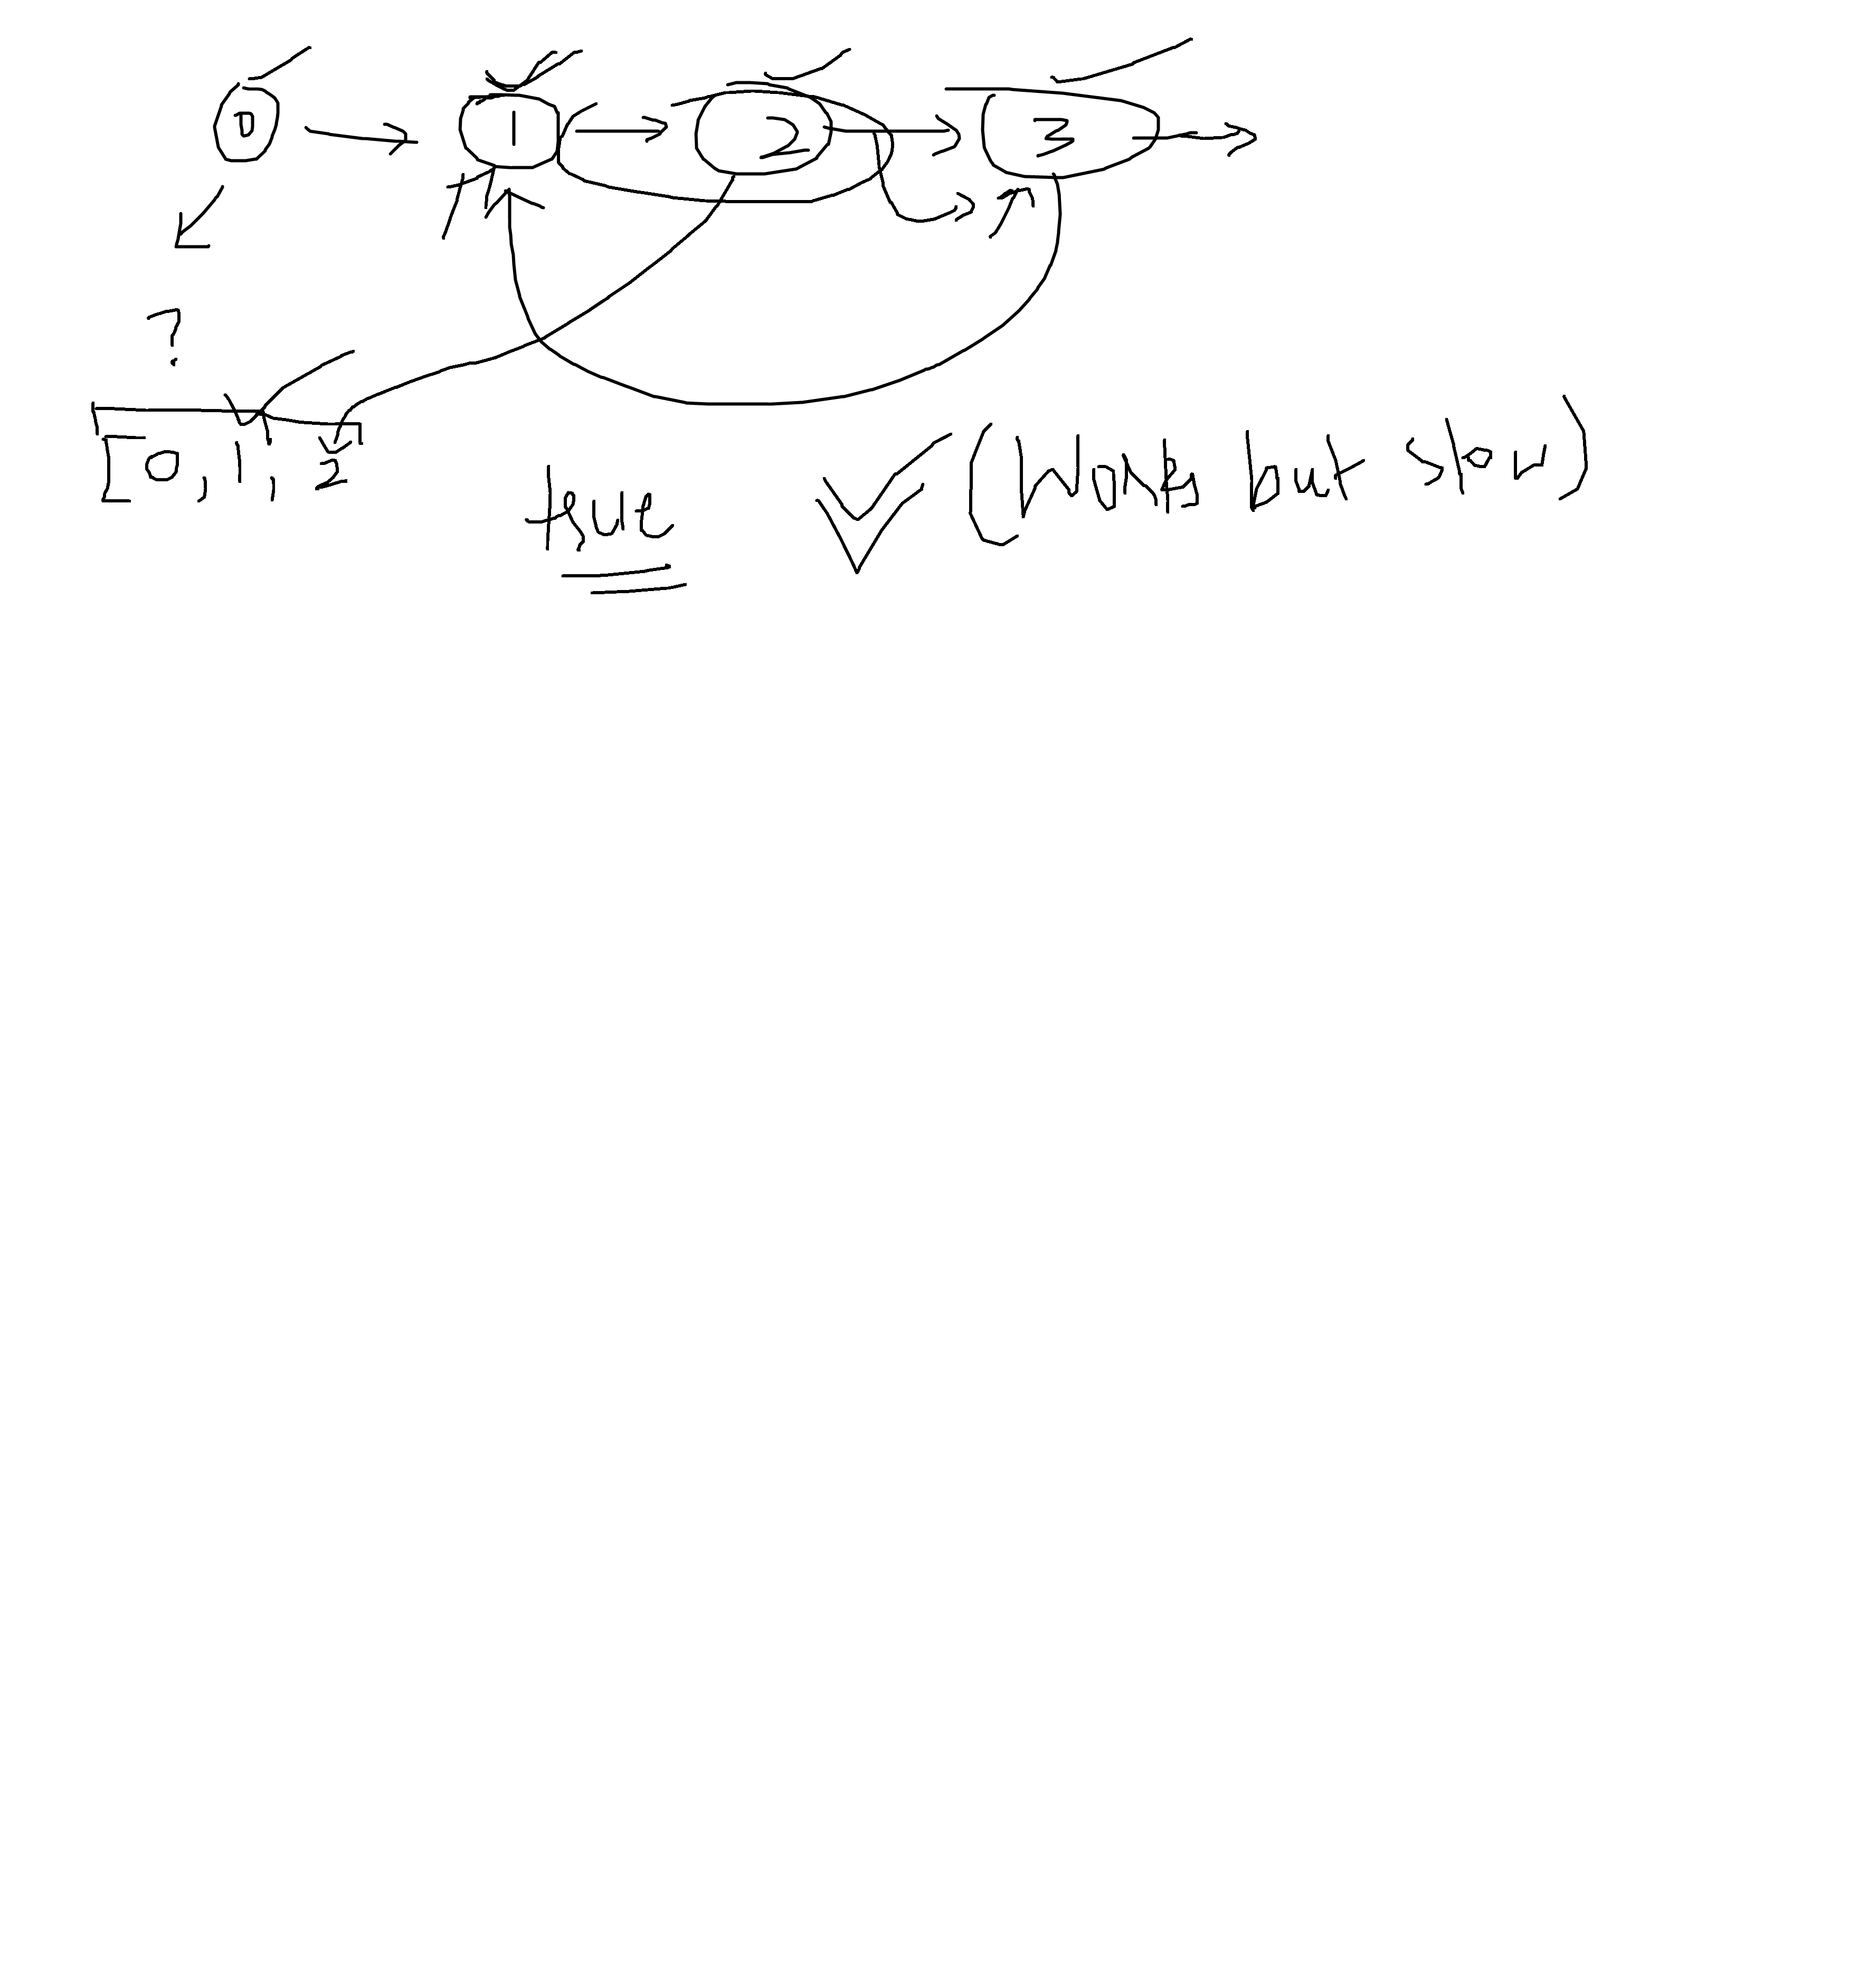 0 1 2 3
?
[0, 1, 2
true (Works but slow)